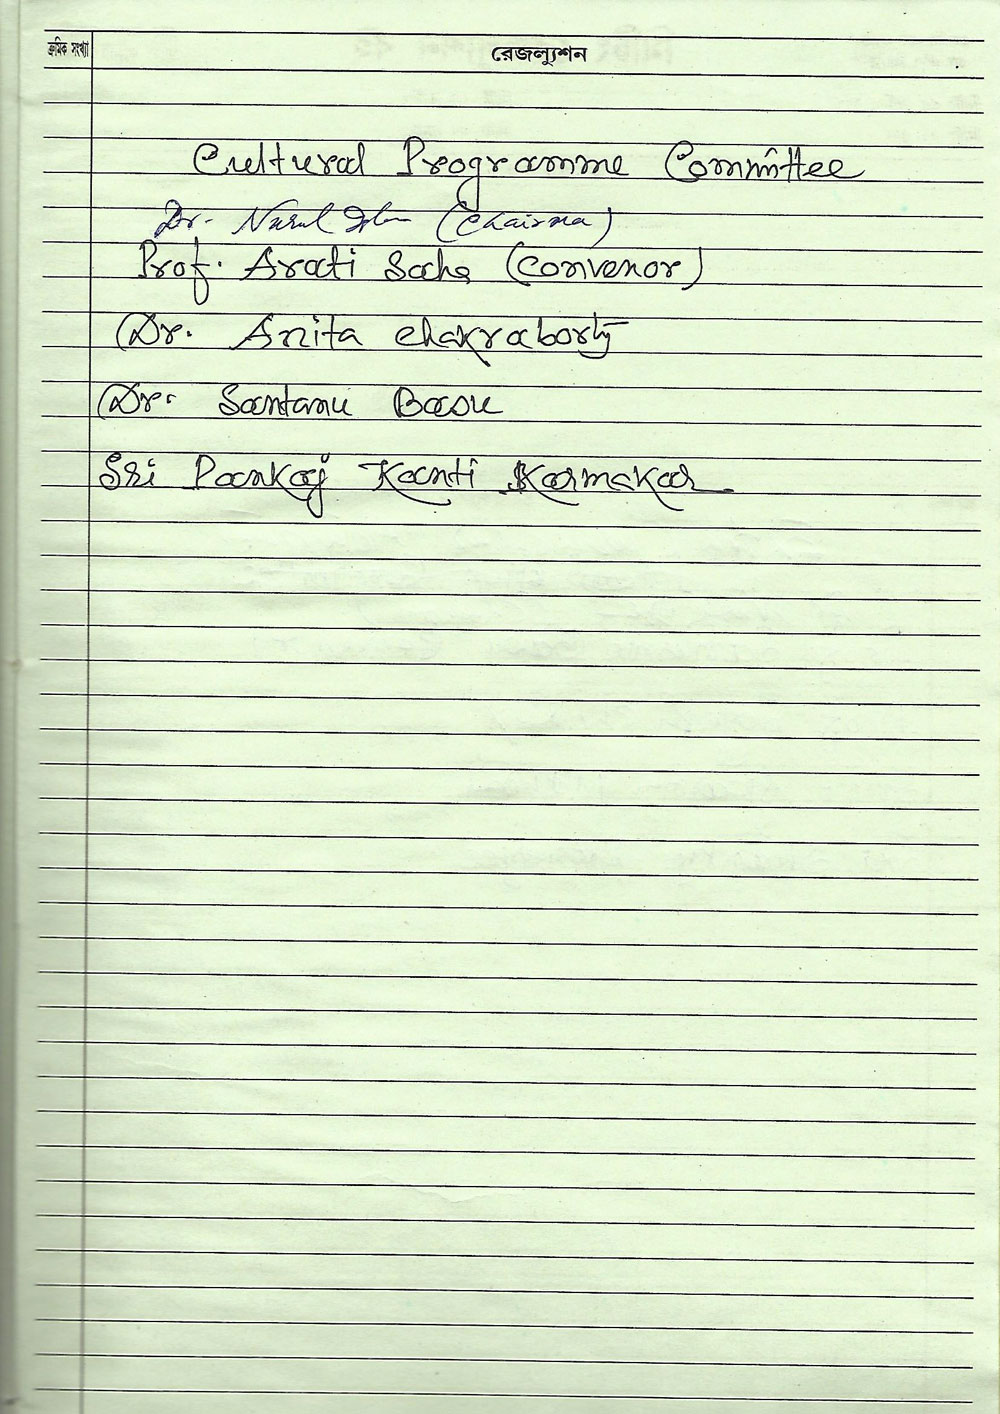 ক্রমিক সংখ্যা
রেজল্যুশন
Cultural Programme Committee
Dr. Nurul (Chairma)
Prof. Arati Saha (Convenor)
Dr. Anita Chakraborty
Dr. Santanu Basu
Sri Pankaj Kanti Karmakar